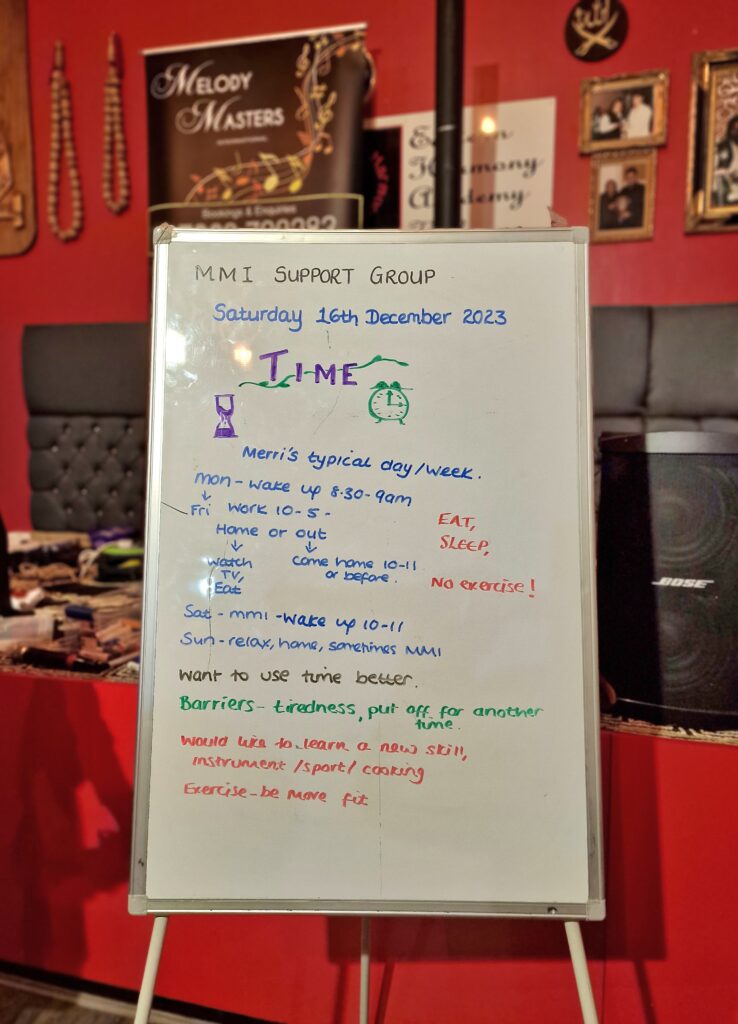 MELODY
MASTERS
Bookings & Enquiries
Harmony
Academy
MMI SUPPORT GROUP
Saturday 16th December 2023
TIME
Merri's typical day/week.
Mon - Wake up 8.30-9am
Fri Work 10-5-
Home or out
Watch Come home 10-11
TV, or before.
Eat
EAT,
SLEEP,
NO exercise!
Sat - mmi - Wake up 10-11
Sun - relax, home, sometimes MMI
Want to use time better.
Barriers - tiredness, put off for another
time.
Would like to learn a new skill,
instrument /sport/ cooking
Exercise - be more fit
BOSE